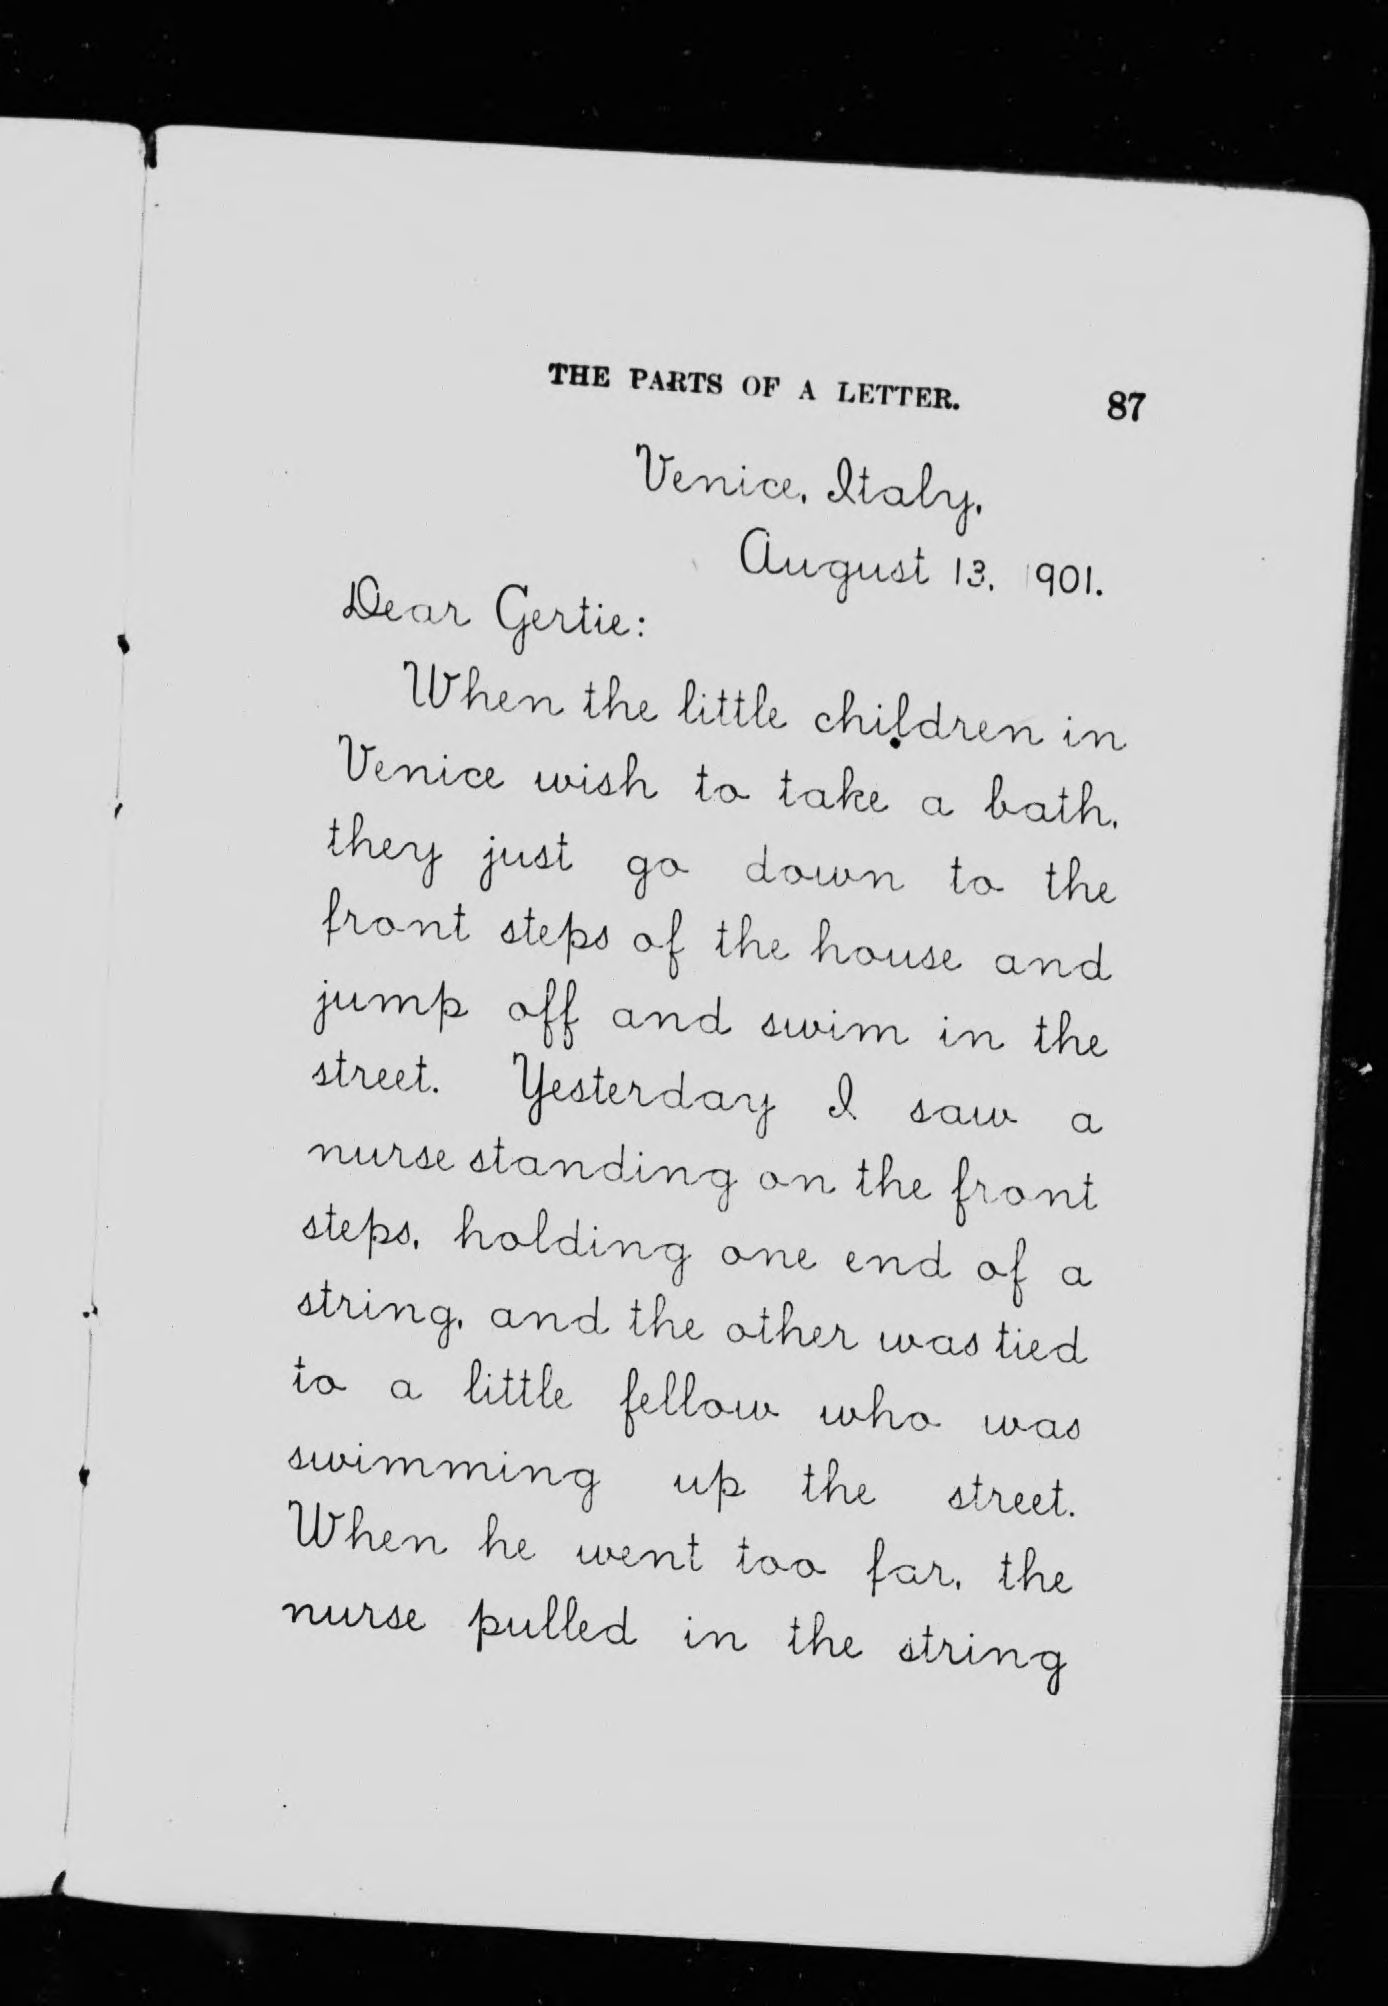 THE PARTS OF A LETTER. 87
Venice, Italy,
August 13, 1901.
Dear Gertie:
When the little children in
Venice wish to take a bath,
they just go down to the
front steps of the house and
jump off and swim in the
street. Yesterday I saw a
nurse standing on the front
steps, holding one end of a
string, and the other was tied
to a little fellow who was
swimming up the street.
When he went too far, the
nurse pulled in the string